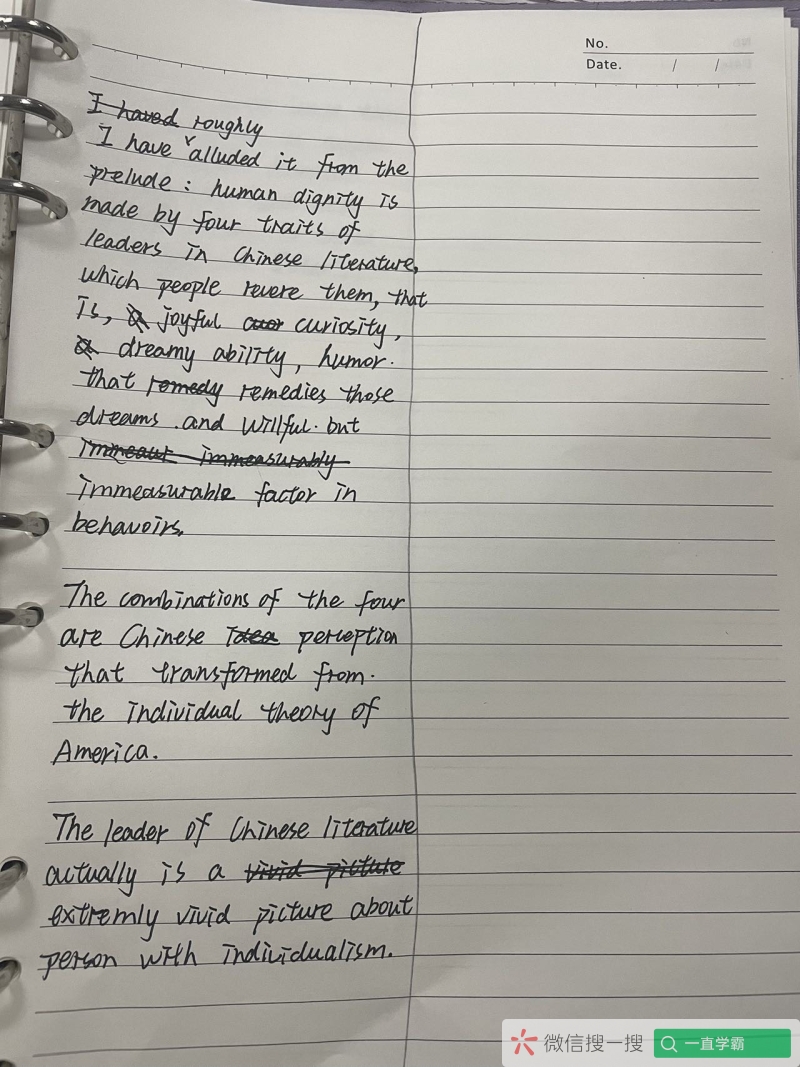 No.
Date. / /
I haved roughly
I have ˅alluded it from the
prelude : human dignity is
made by four traits of
leaders in Chinese literature,
which people revere them, that
is, joyful curiosity,
a dreamy ability, humor.
that remedy remedies those
dreams and willful but
immeasurably
immeasurable factor in
behavoirs.
The combinations of the four
are Chinese idea perception
that transformed from.
the individual theory of
America.
The leader of Chinese literature
actually is a vivid picture
extremly vivid picture about
person with individualism.
微信搜一搜
一直学霸